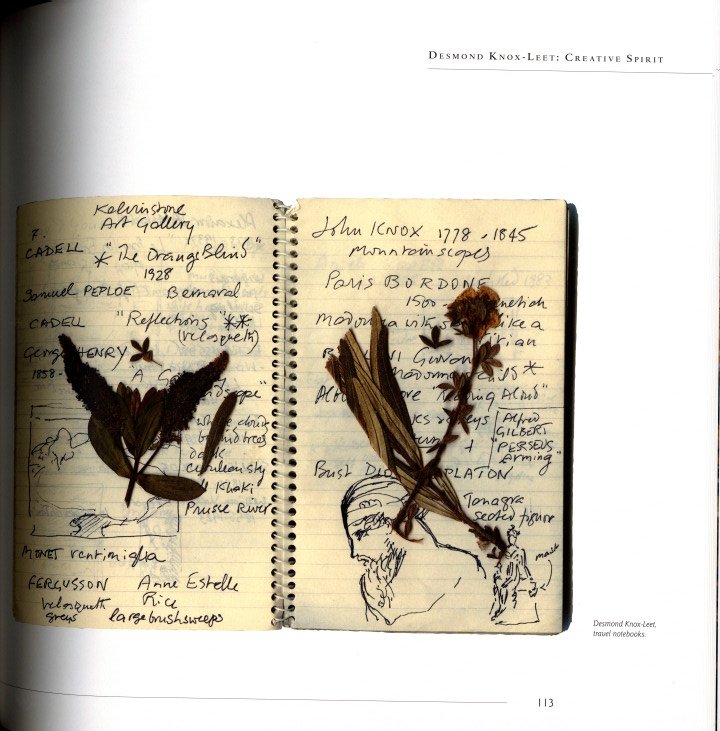 DESMOND KNOX-LEET: CREATIVE SPIRIT
Kelvinstone
Art Gallery
7.
CADELL * "The Orange Blind"
1928
Samuel PEPLOE
CADELL "Reflections" **
(velasqueth)
George HENRY
1858-
"A G
dscape"
white clouds
behind trees
dark
cerulean sky
" Khaki
Prusse River
MONET ventimiglia
FERGUSSON Anne Estelle
Rice
velasqueth
greys
large brush sweeps
John KNOX 1778 - 1845
Mountainscapes
Paris BORDONE
1500 - netian
Madonna like a
itian
NI Giovan
Madonna & child *
ore "Reading Aloud"
Alfred
GILBERT
"PERSEUS
Arming"
Bust PLATON
Tanagra
seated figure
mask
Desmond Knox-Leet,
travel notebooks.
113